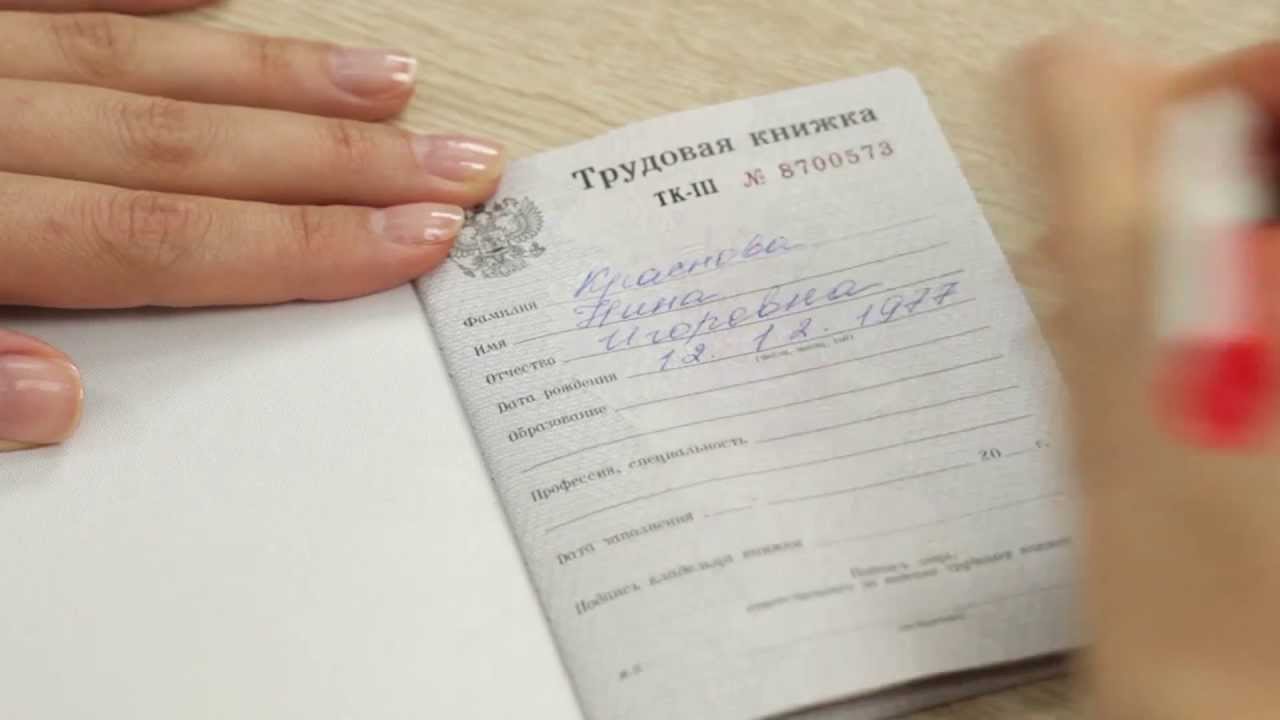 Трудовая книжка
ТК-III № 8700573
Фамилия Краснова
Имя Нина
Отчество Игоровна
Дата рождения 12. 12. 1977
(число, месяц, год)
Образование
Профессия, специальность
Дата заполнения 20 г.
Подпись владельца книжки
Подпись лица,
ответственного за ведение трудовых книжек
М.П.